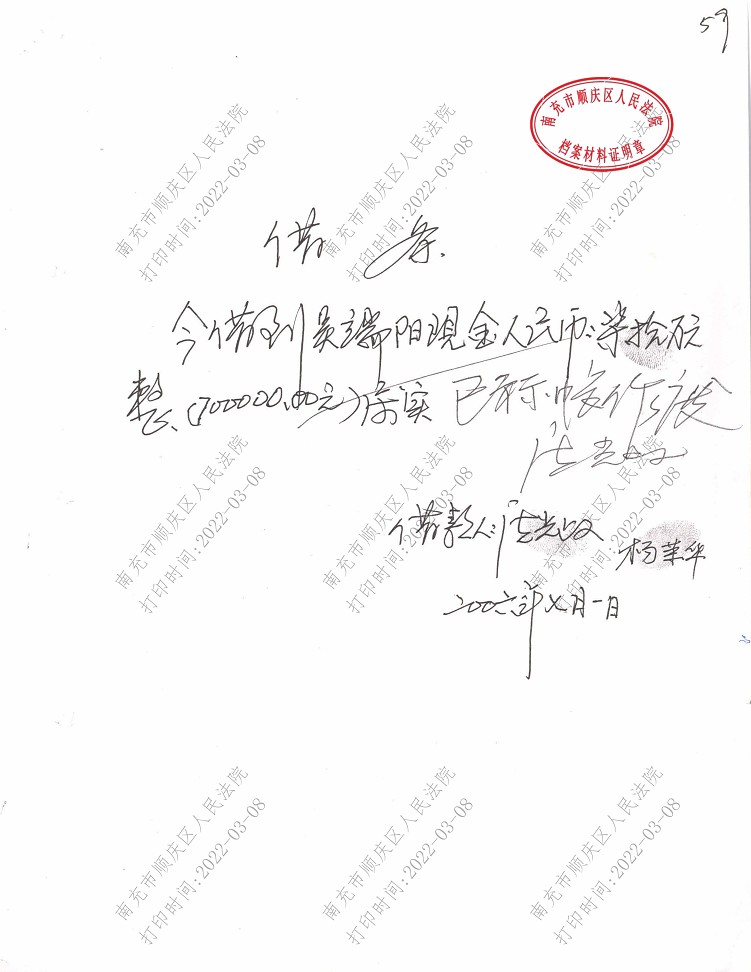 59
南充市顺庆区人民法院
档案材料证明章
借条.
今借到吴端阳现金人民币:柒拾万元
整(700000.00元)属实 已转帐作废
借款人: 杨荣华
二00六年七月一日
南充市顺庆区人民法院
打印时间:2022-03-08
南充市顺庆区人民法院
打印时间:2022-03-08
南充市顺庆区人民法院
打印时间:2022-03-08
南充市顺庆区人民法院
打印时间:2022-03-08
南充市顺庆区人民法院
打印时间:2022-03-08
南充市顺庆区人民法院
打印时间:2022-03-08
南充市顺庆区人民法院
打印时间:2022-03-08
南充市顺庆区人民法院
打印时间:2022-03-08
南充市顺庆区人民法院
打印时间:2022-03-08